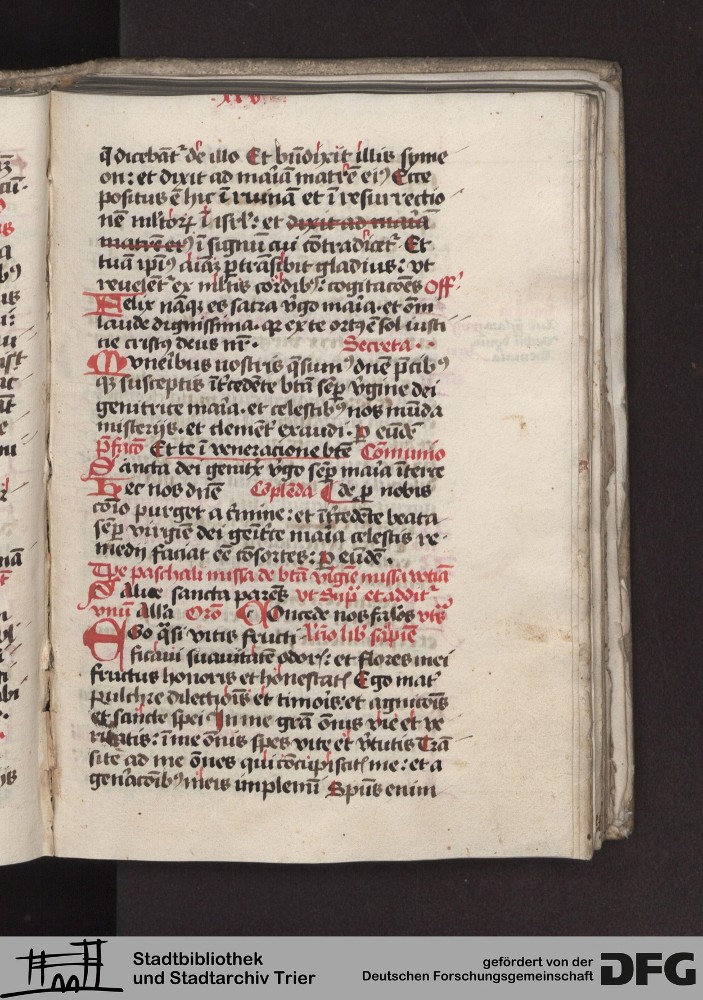 xxv
q̄ dicebāt᷑ de illo Et bn̄dixit illis syme
on : et dixit ad mariā matrē eiꝰ Ecce
positus ē hic ī ruinam et ī resurrectio
nē mltōrꝫ ī isrl̄ : et dixit ad mariā
matrē eiꝰ ī signū cui cōtradicet᷑ Et
tuā ipīꝰ aīaꝫ ꝑtrāsibit gladius : vt
reuelēt᷑ ex mltis cordibꝰ : cogitacōes Off᷑
Felix nāqꝫ es sacra v̄go maria · et om̄i
laude dignissima · qꝛ ex te ortꝰ ē sol iusti
cie cristꝰ deus nr̄ · Secreta · ·
Muneribus nostris q̄sumꝰ dn̄e p̄cibꝰ
qꝫ susceptis īt᷑cedēte btā semꝑ v̄gine dei
genitrice maria · et celestibꝰ nos mūda
misterijs · et clemēt᷑ exaudi · ꝑ eūdē
p̄facō Et te ī veneracione btē Cōmunio
Sancta dei genitx v̄go semꝑ maria īterce
Hec nos dn̄e Cōplēda de ꝑ nobis
cōio purget a c̄mine : et īt᷑cedēte beata
semꝑ virgīe dei genit᷑ce maria celestis re-
medij faciat eē cōsortes : ꝑ eūdē ·
Tp̄e paschali missa de btā v̄gīe missa votīa
Salue sancta parēs vt supͣ et addit᷑
vnum Alla Orō Concede nos falos vts̄
Ego q̄si vitis fructi Lc̄io lib sapiēͤ
ficaui suauitatē odorꝭ : et flores mei
fructus honoris et honestatꝭ Ego mat᷑
pulchre dilectiōis et timoīs : et agnicōis
et sancte spei In me grā ōnis vie et ve
ritatis : ī me ōnis spes vite et v̄tutis Trā
site ad me ōnes qui cōcupiscitꝭ me : et a
genīacōibꝰ meis implemī Spūs enim
Stadtbibliothek
und Stadtarchiv Trier
gefördert von der
Deutschen Forschungsgemeinschaft
DFG